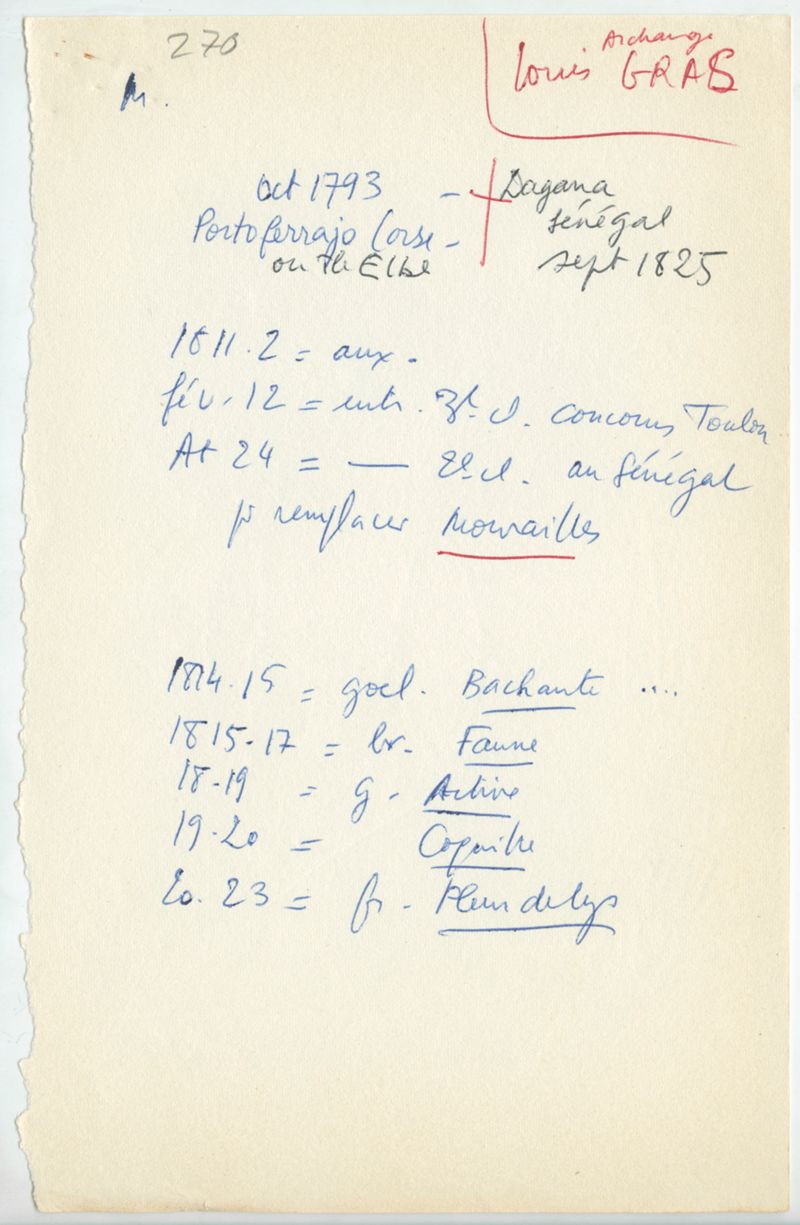 270
M.
Archange
Louis GRAS
Oct 1793 - + Dagana
Portoferrajo Corse - Sénégal
ou Ile Elbe sept 1825
1811.2 = aux.
fév. 12 = entr. 3è cl. concours Toulon
At 24 = — 2è cl. au Sénégal
pr remplacer Mourailles
1814.15 = goel. Bachante ....
1815-17 = br. Faune
18-19 = g. Active
19-20 = Coquille
20.23 = fr. Fleur de lys